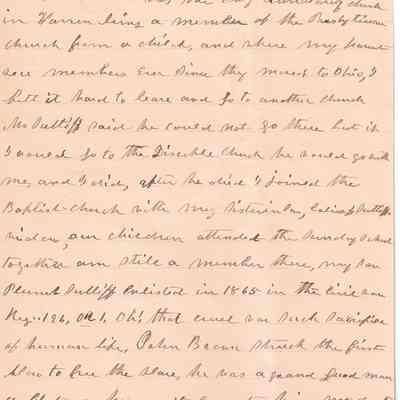 church
in Warren being a member of the Presbyterian
church from a child, and where my parent
were members Ever Since they moved to Ohio, I
felt it hard to leave and go to another church
Mr Sutliff said he could not go there but if
I would go to the Disciple Church he would go with
me, and I did, after he died I joined the
Baptist church with my Sisterinlaw, Sutliff
widow, our children attended the Sunday School
together am still a member there, my son
Plumb Sutliff Enlisted in 1865 in the Civil war
Reg.. 196, O.. Oh! that cruel war Such Sacrifice
of human life, John Brown Struck the first
blow to free the Slave, he was a grand good man